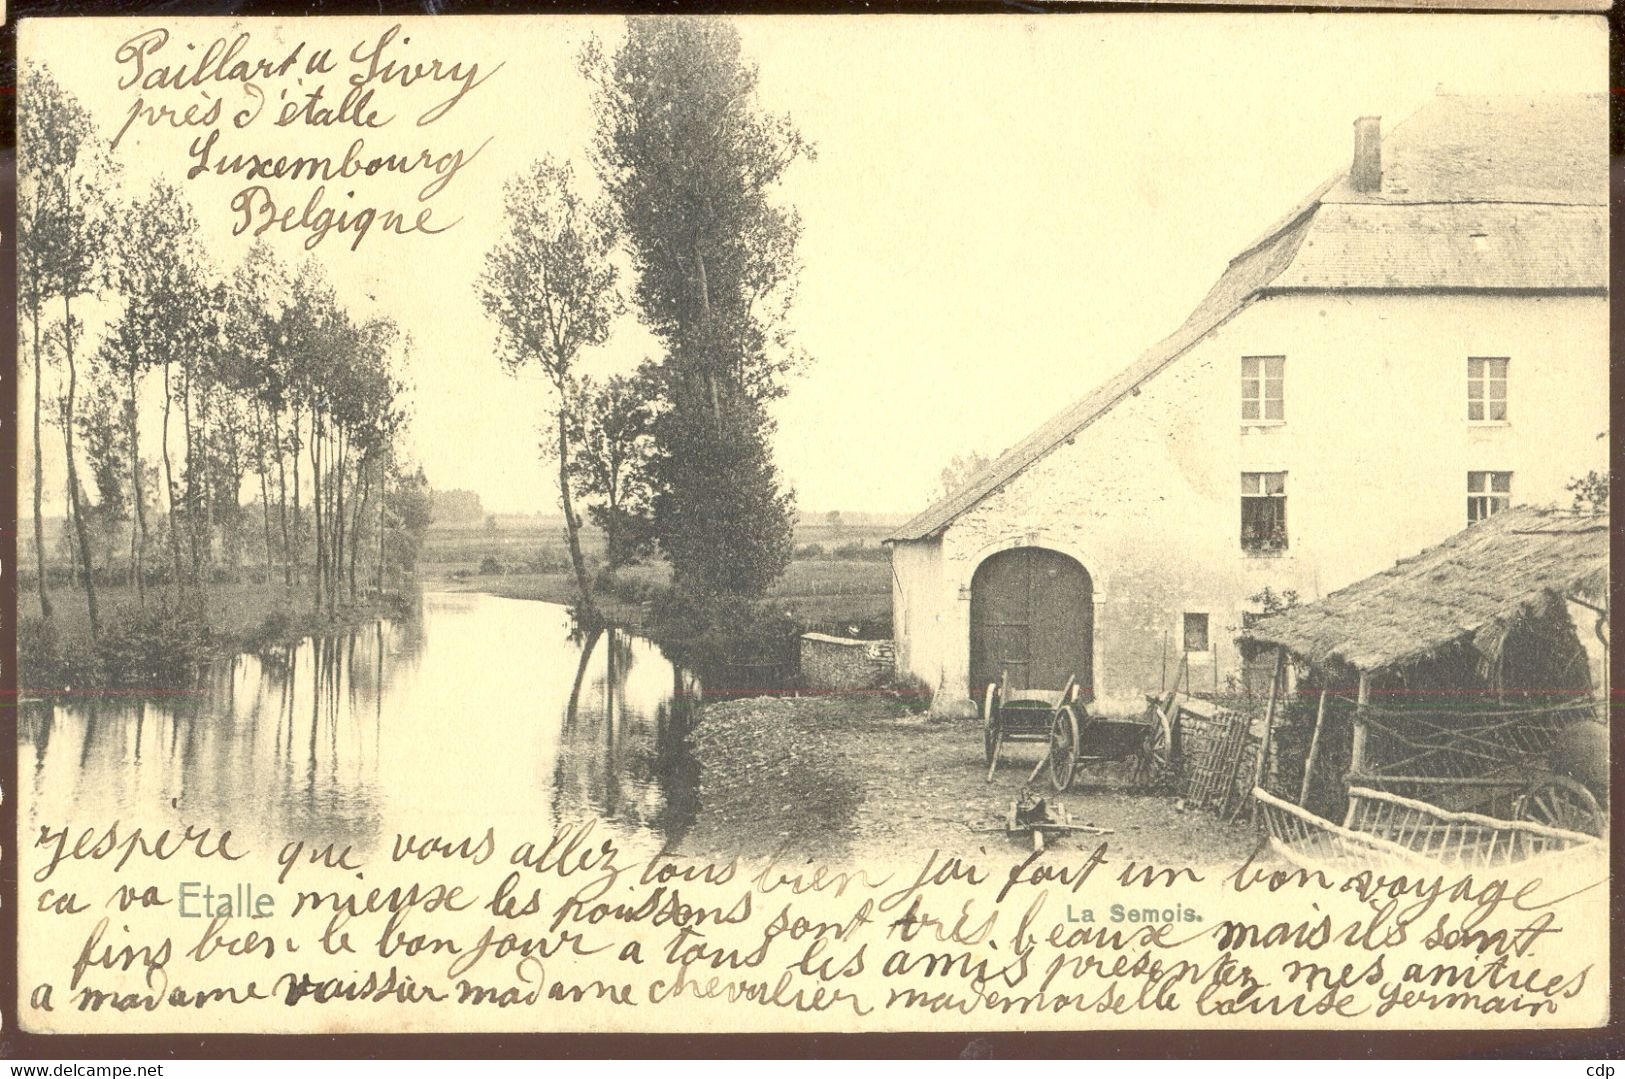 Paillart a Sivry
près d'étalle
Luxembourg
Belgique
jespère que vous allez tous bien jai fait un bon voyage
ca va mieuxe les poissons sont très beauxe mais ils sont
Etalle
La Semois.
fins bien le bonjour a tous les amis présentez mes amitiées
a madame vaissier madame chevalier mademoiselle louise germain
www.delcampe.net
cdp